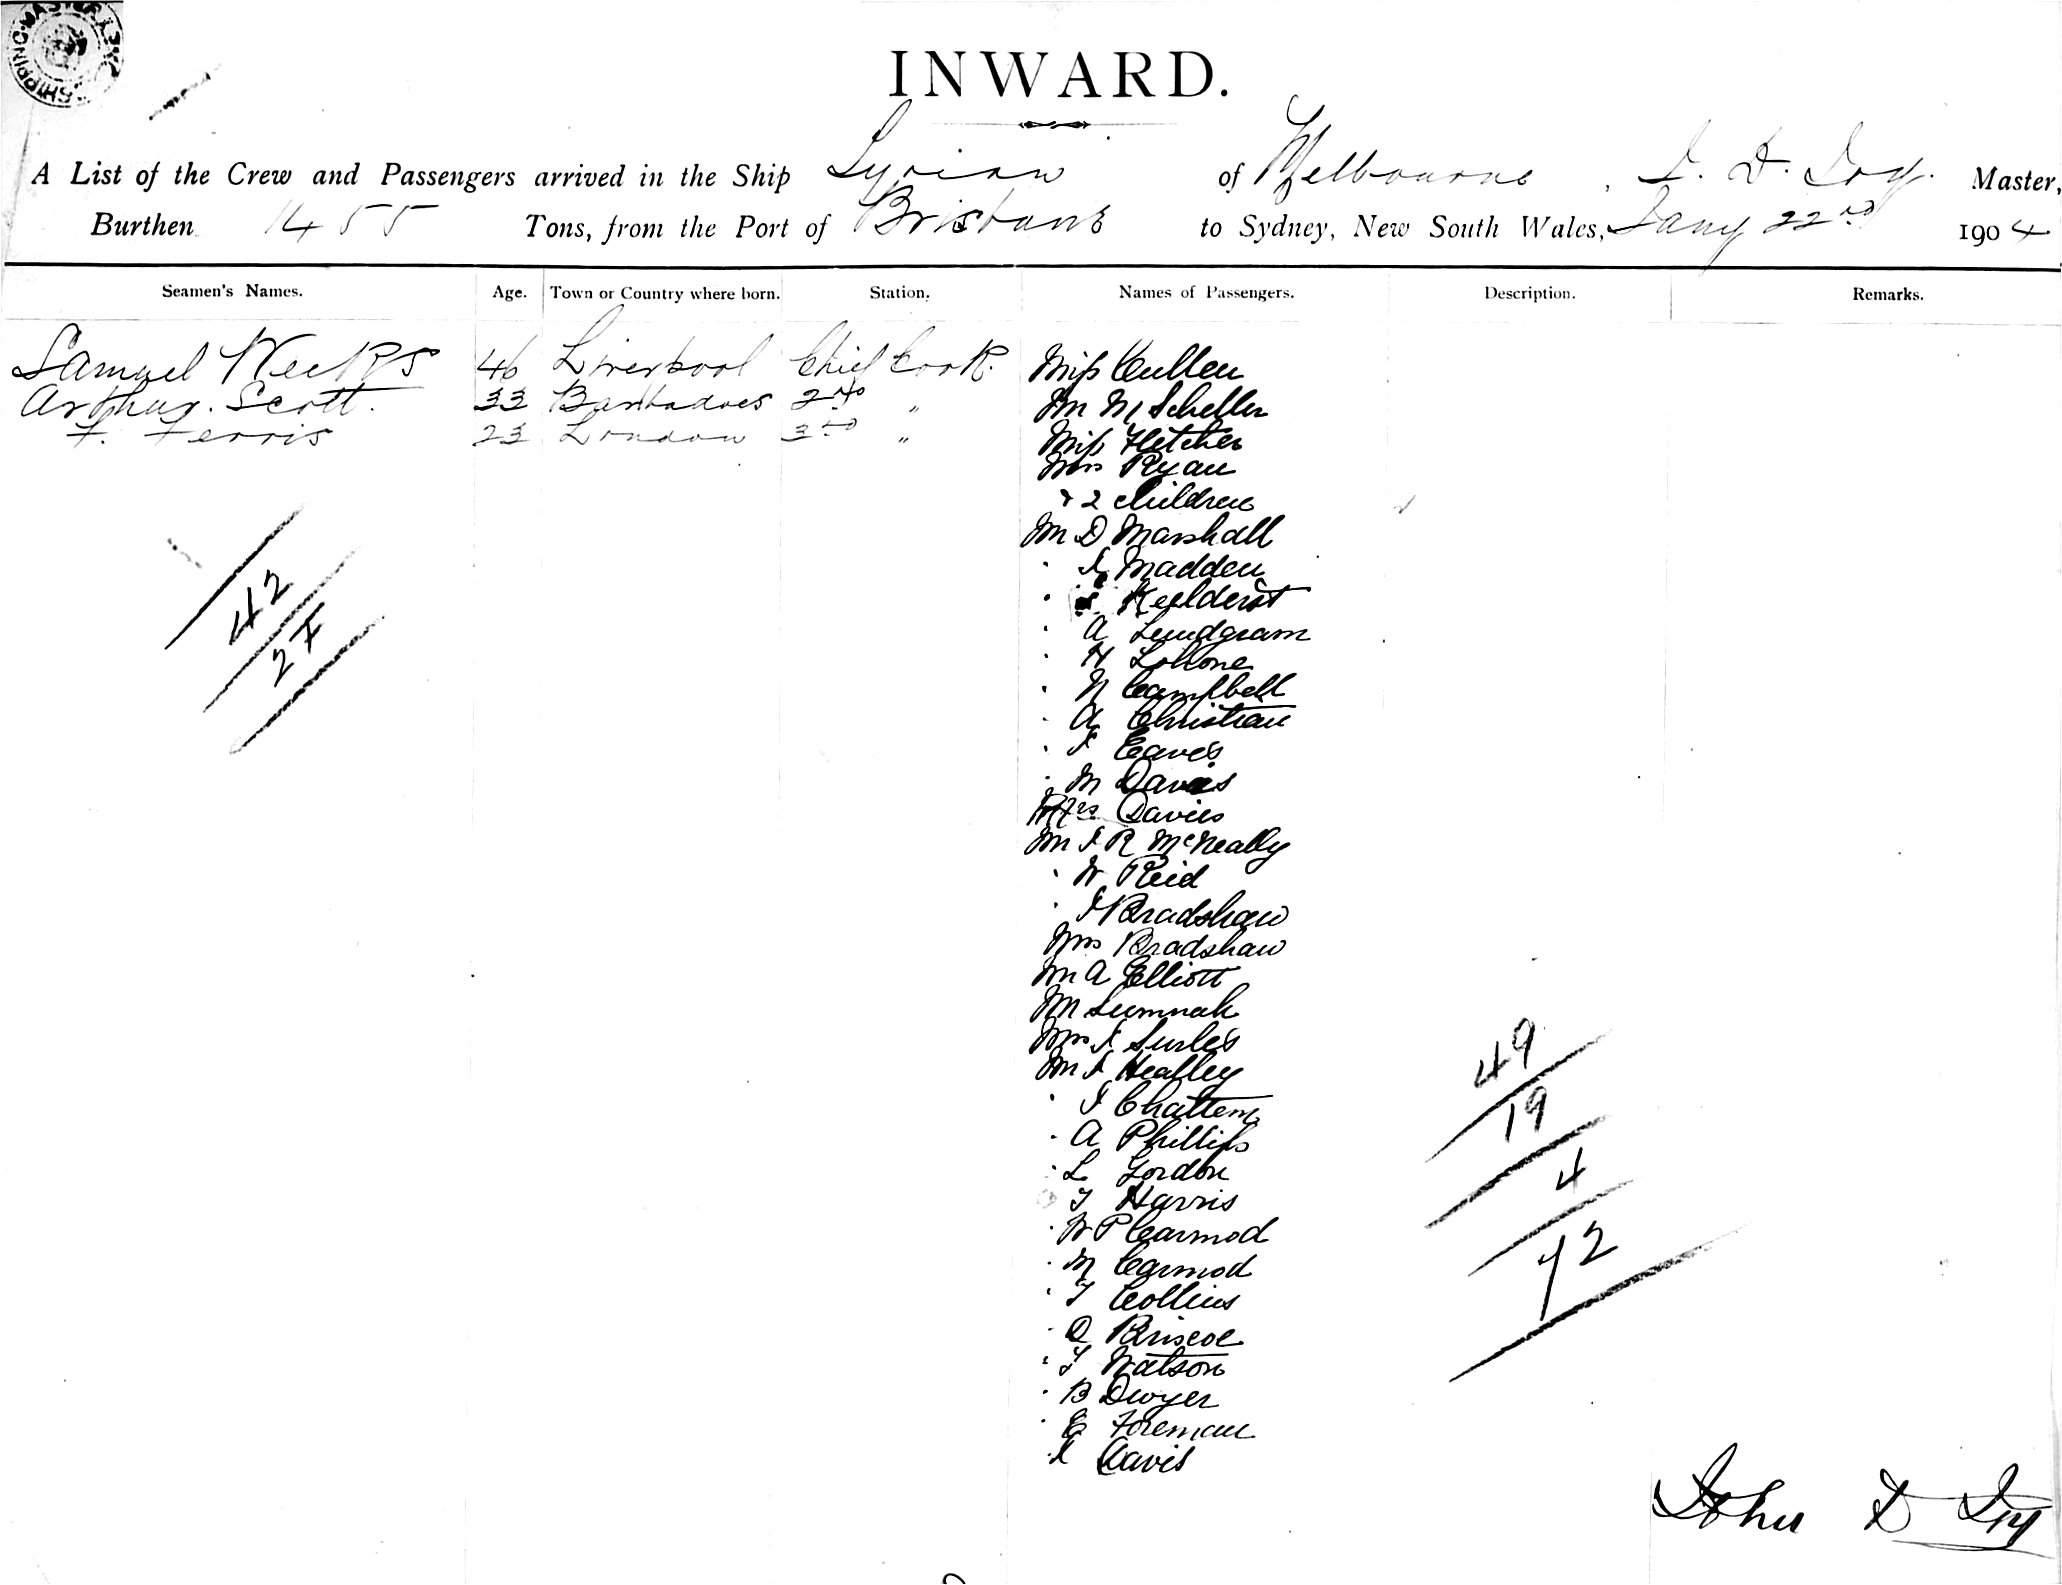 SHIPPING MASTER
INWARD.
A List of the Crew and Passengers arrived in the Ship Syrian of Melbourne, J. D. Joy. Master,
Burthen 1455 Tons, from the Port of Brisbane to Sydney, New South Wales, Jany 22nd 1904
Seamen's Names. Age. Town or Country where born. Station. Names of Passengers. Description. Remarks.
Samuel Weeks 46 Liverpool Chief Cook.
Arthur. Scott. 33 Barbadoes 2nd "
F. Ferris 23 London 3rd "
42
27
Miss Cullen
Mr M Scheller
Miss Fletcher
Mrs Ryan
& 2 children
Mr D Marshall
" J Madden
"
" A Lundgram
" H
" N Campbell
" A Christian
" J Eaves
" M Davis
Mrs Davies
Mr J R McNeally
" W Reid
" J Bradshaw
Mrs Bradshaw
Mr A Elliott
Mr
Mrs J Surles
Mr J Healley
" J Chattem
" A Phillips
" L Gordon
" T Harris
" W P Carmod
" M Carmod
" T Collins
" D Briscoe
" T Watson
" B Dwyer
" E Foreman
" J Davis
49
19
4
72
John D Joy